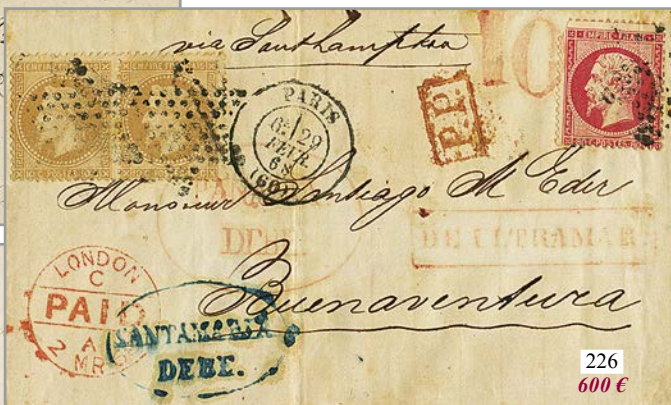 via Southampton
10
EMPIRE FRANC
P.P.
PARIS
29
FEVR
68
(60)
Monsieur Santiago M Eder
DEBE
DE ULTRAMAR
Buenaventura
LONDON
C
PAID
A
2 MR
SANTAMARTA
DEBE.
226
600 €